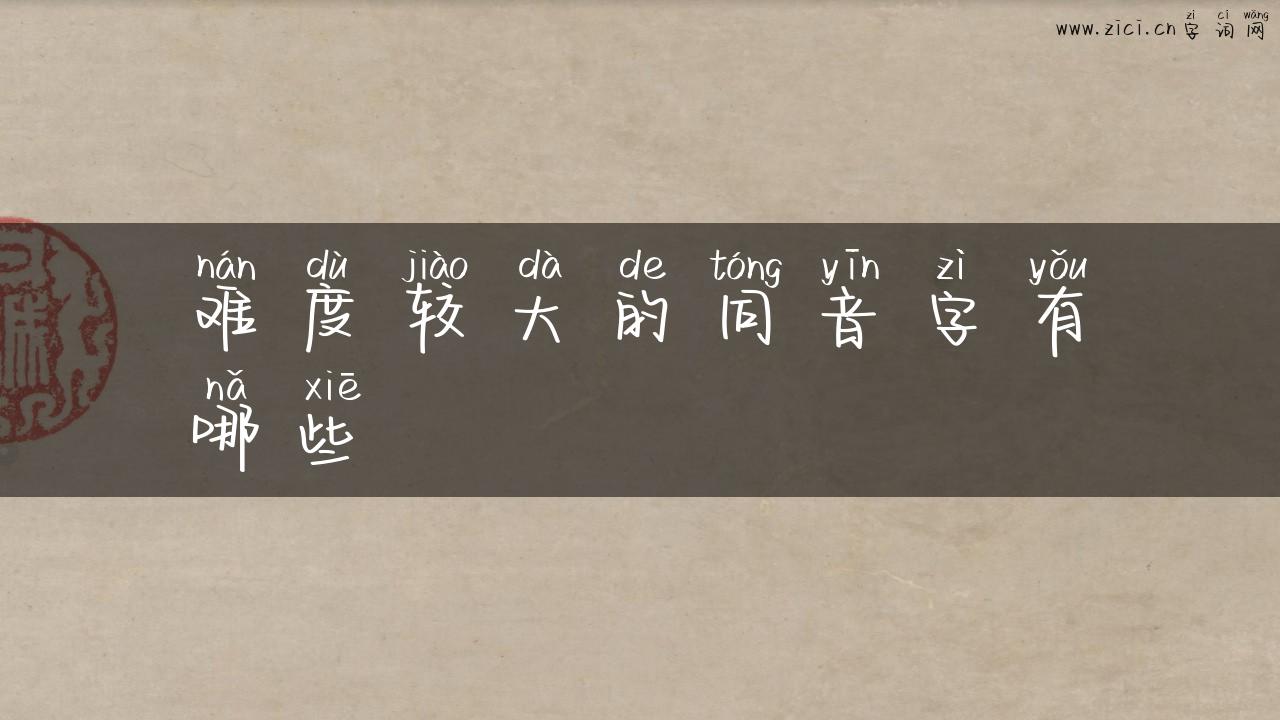 zì cí wǎng
www.zici.cn 字 词 网
nán dù jiào dà de tóng yīn zì yǒu
难 度 较 大 的 同 音 字 有
nǎ xiē
哪 些